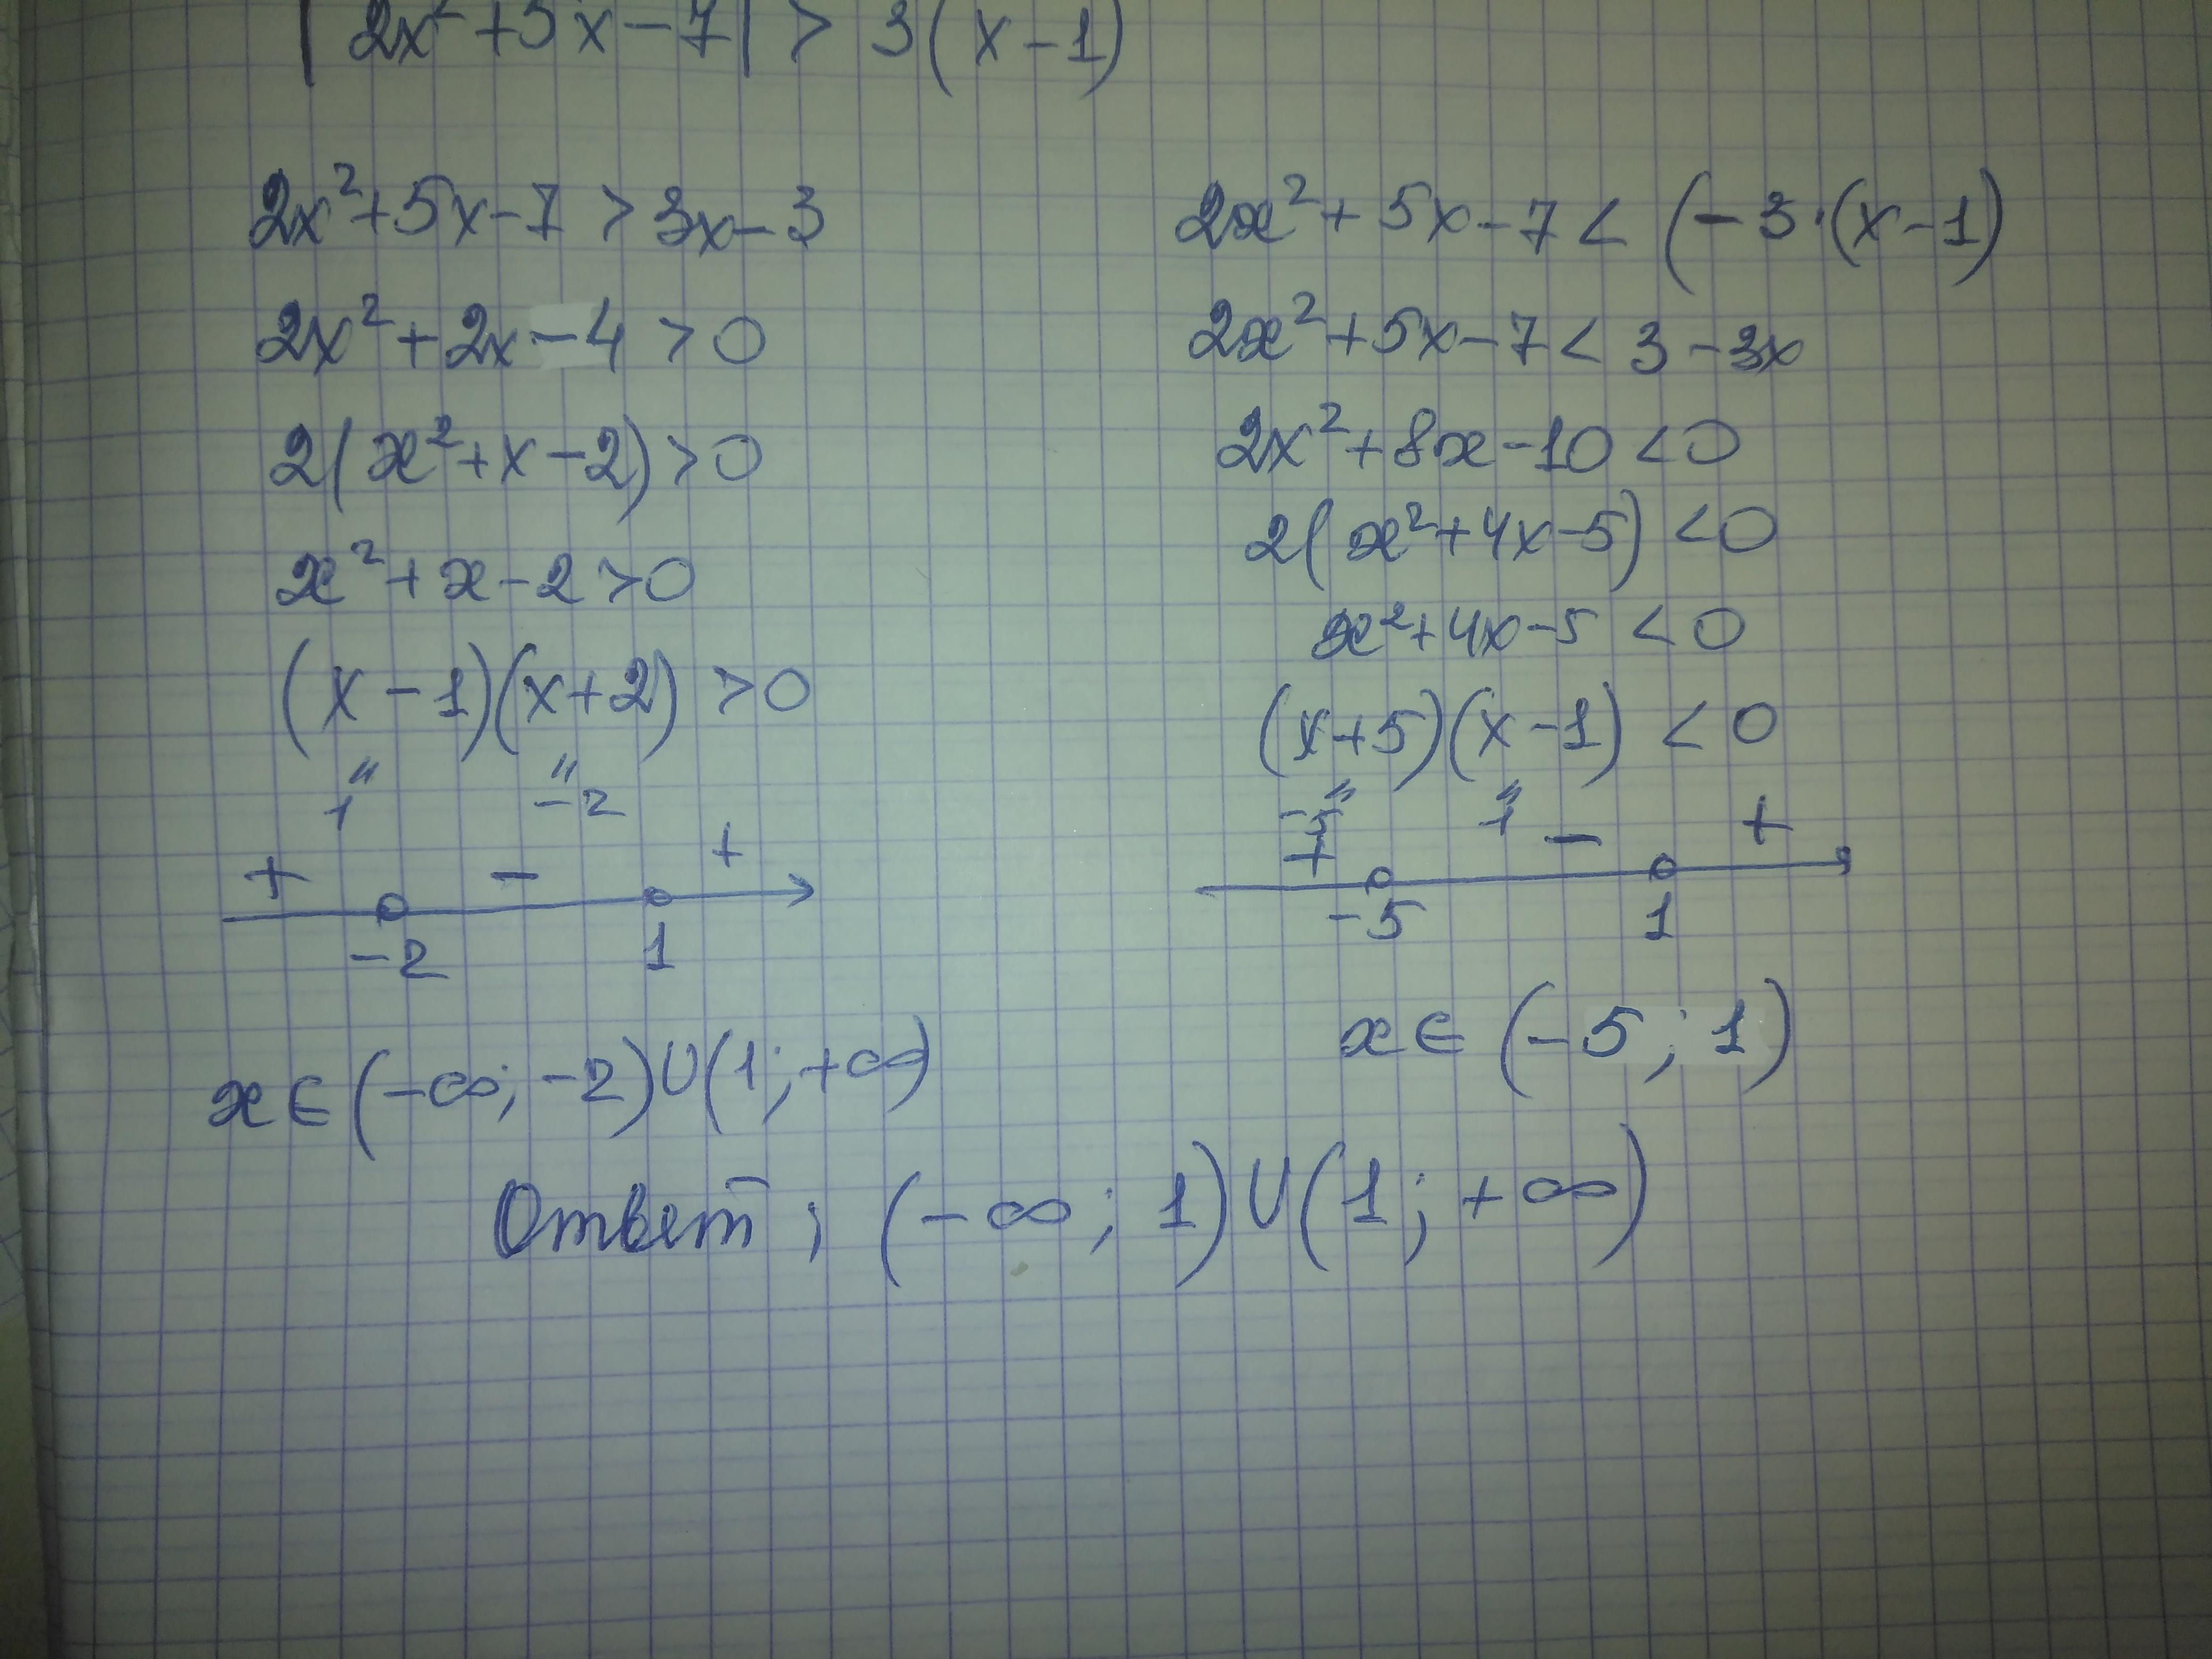 |2x²+5x-7| > 3(x-1)
2x²+5x-7 > 3x-3
2x²+2x-4 > 0
2(x²+x-2)>0
x²+x-2>0
(x-1)(x+2) >0
" "
1 -2
+ - +
-2 1
x∈(-∞;-2)∪(1;+∞)
2x²+5x-7< (-3·(x-1)
2x²+5x-7< 3-3x
2x²+8x-10<0
2(x²+4x-5) <0
x²+4x-5 <0
(x+5)(x-1) < 0
" "
-5 1
+ - +
-5 1
x∈ (-5; 1)
Ответ; (-∞; 1)∪(1; +∞)